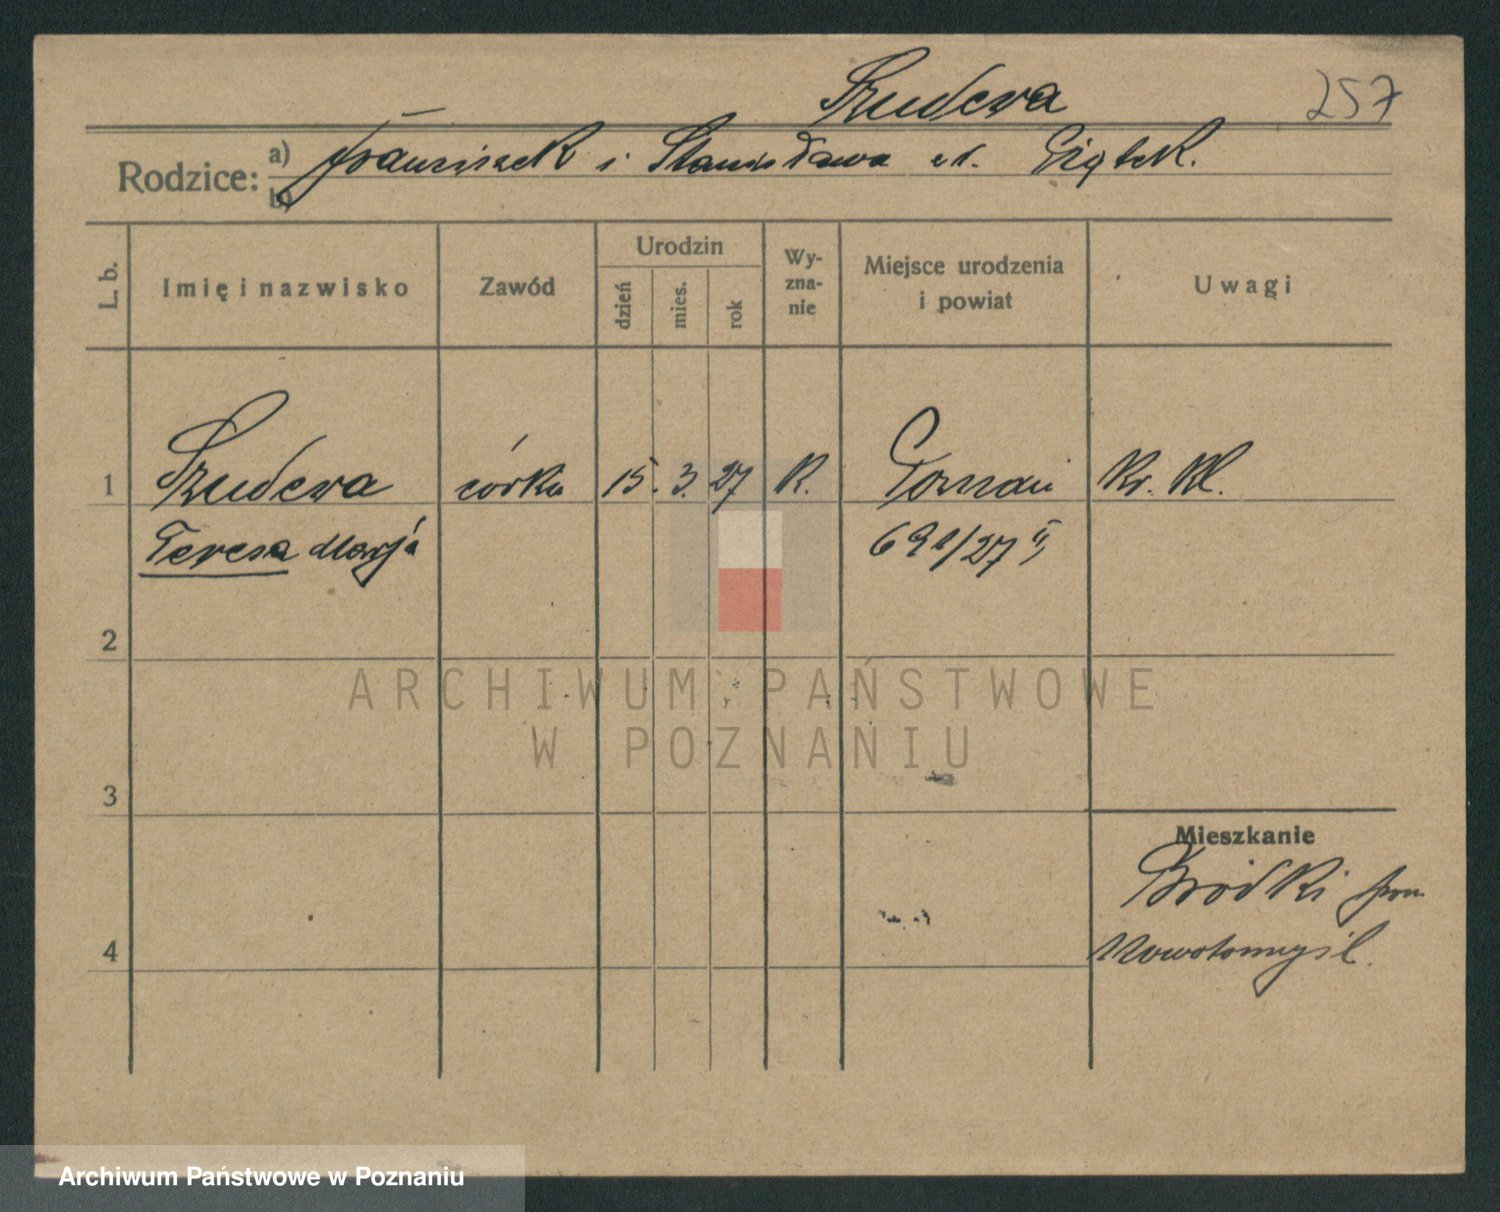 Szudera
257
Rodzice: a) Franciszek i Stanisława ur. Piątek.
b)
L. b.
Imię i nazwisko
Zawód
Urodzin
dzień
mies.
rok
Wy-
zna-
nie
Miejsce urodzenia
i powiat
Uwagi
1 Szudera córka 15. 3. 27 K. Poznań Kr. Kl.
Teresa Marja 691/27 II
2
ARCHIWUM PAŃSTWOWE
W POZNANIU
3
Mieszkanie
Bródki pow.
4 Nowotomyśl.
Archiwum Państwowe w Poznaniu